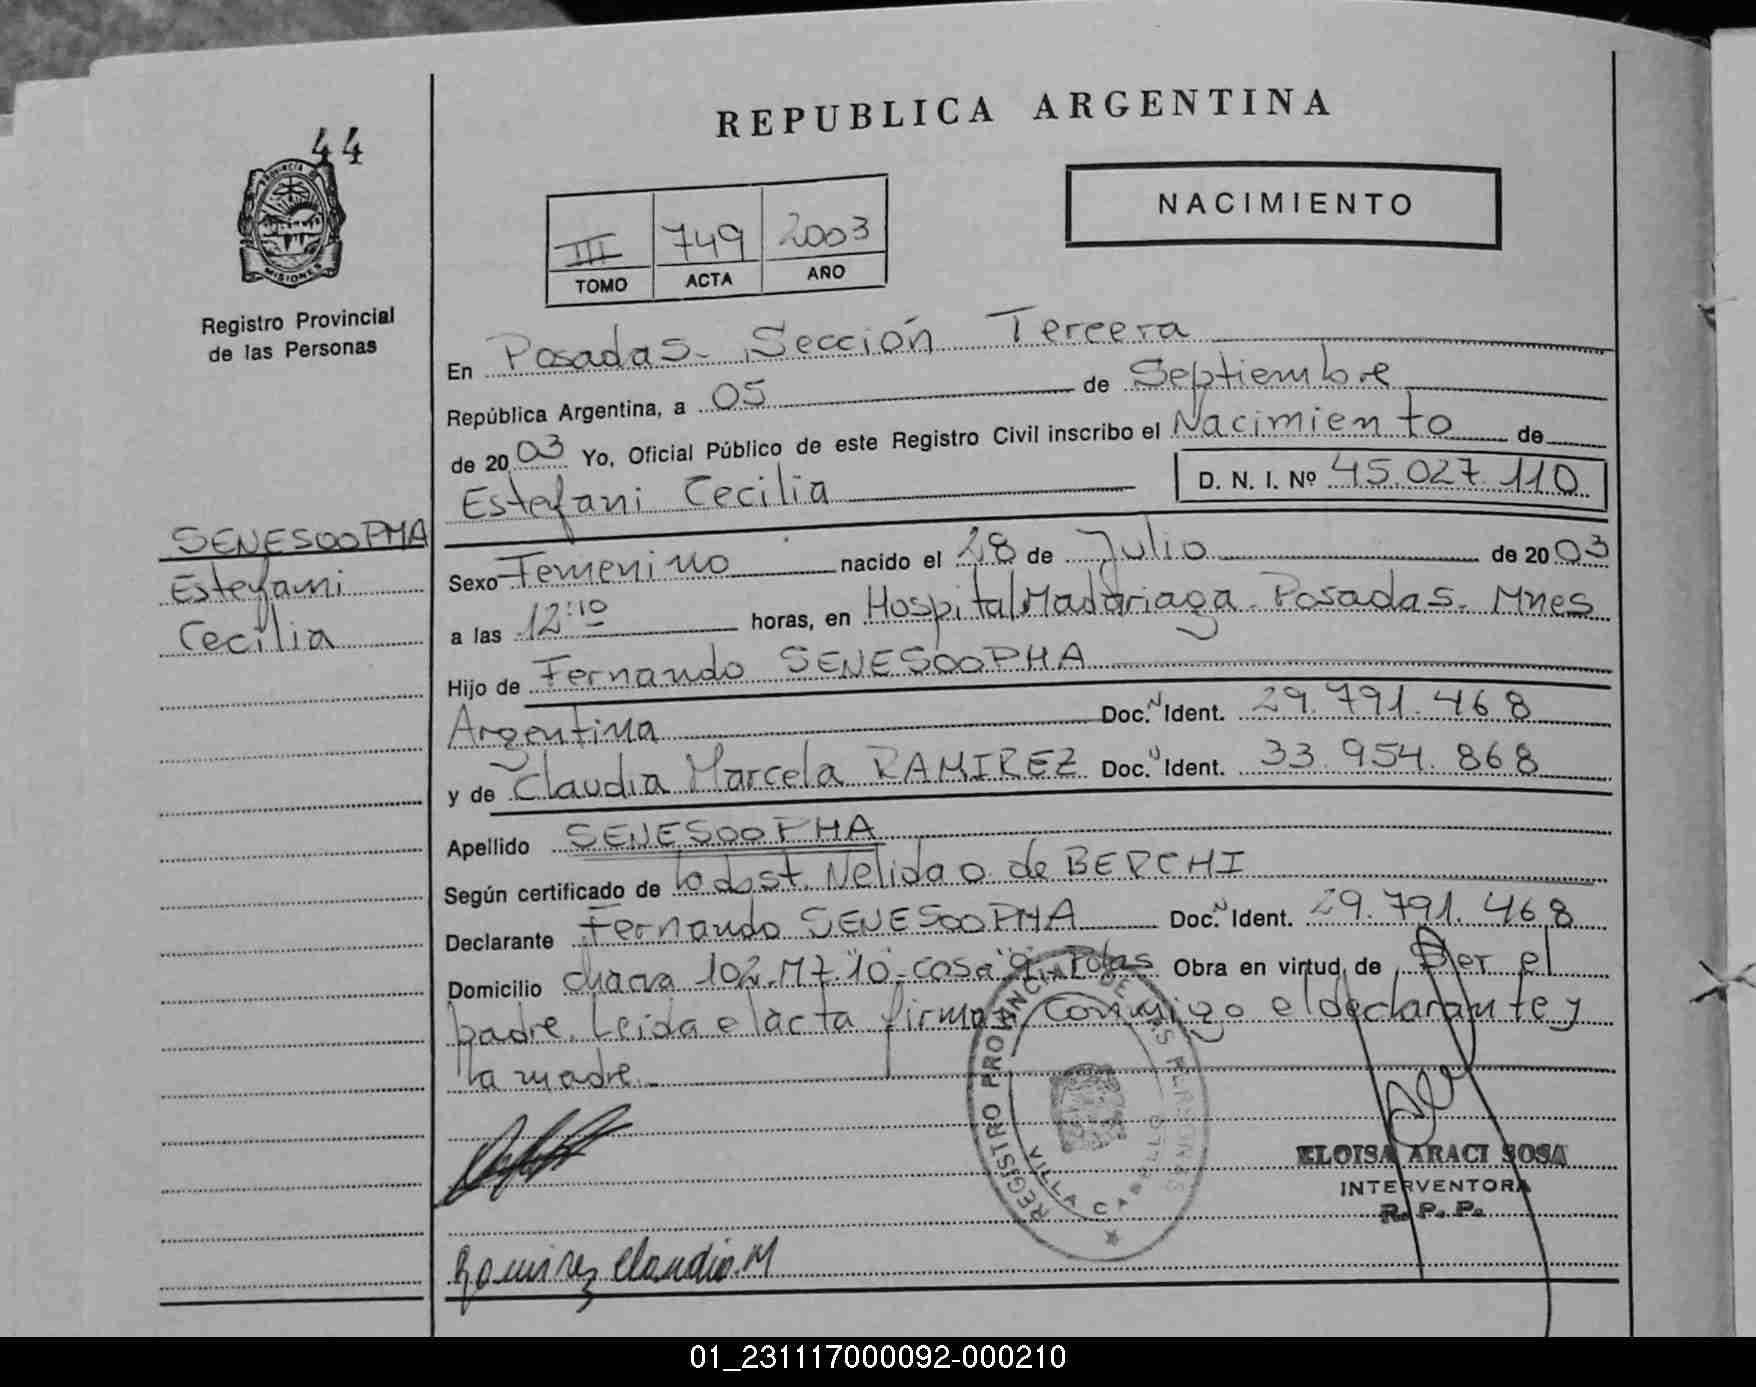 44
REPUBLICA ARGENTINA
NACIMIENTO
III 749 2003
TOMO ACTA AÑO
PROVINCIA DE
MISIONES
Registro Provincial
de las Personas
En Posadas. Sección Tercera
República Argentina, a 05 de Septiembre
de 20 03 Yo, Oficial Público de este Registro Civil inscribo el Nacimiento de
Estefani Cecilia D. N. I. Nº 45.027.110
SENESOOPHA
Estefani
Cecilia
Sexo Femenino nacido el 28 de Julio de 20 03
a las 12:10 horas, en Hospital Madariaga. Posadas. Mnes
Hijo de Fernando SENESOOPHA
Argentina Doc. N Ident. 29.791.468
y de Claudia Marcela RAMIREZ Doc. N Ident. 33.954.868
Apellido SENESOOPHA
Según certificado de obst. Nelida O. de BERCHI
Declarante Fernando SENESOOPHA Doc. N Ident. 29.791.468
Domicilio chacra 102.Mz.10-casa 9. Pdas Obra en virtud de Ser el
padre. Leida el acta firman conmigo el declarante y
la madre.
REGISTRO PROVINCIAL DE LAS PERSONAS
VILLA CABELLO
ELOISA ARACI SOSA
INTERVENTORA
R. P. P.
Ramirez Claudia.M
01_231117000092-000210